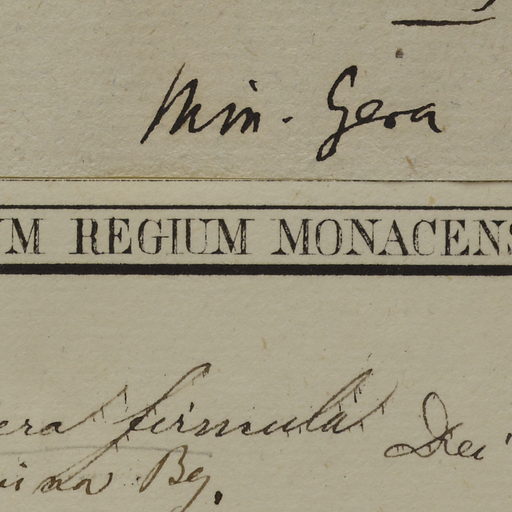 Min. Gera
UM REGIUM MONACENS
era firmula Dei
ina By.